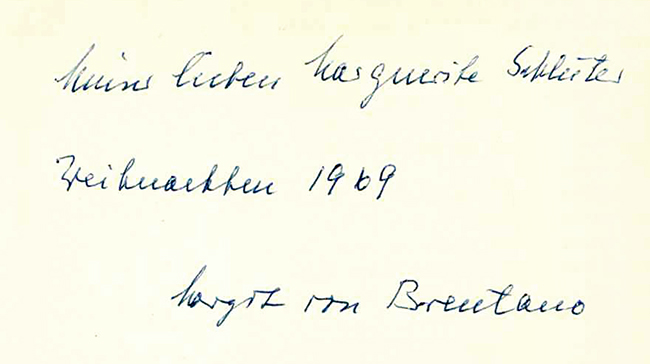 Meiner lieben Marguerite Schlüter
Weihnachten 1969
Margot von Brentano